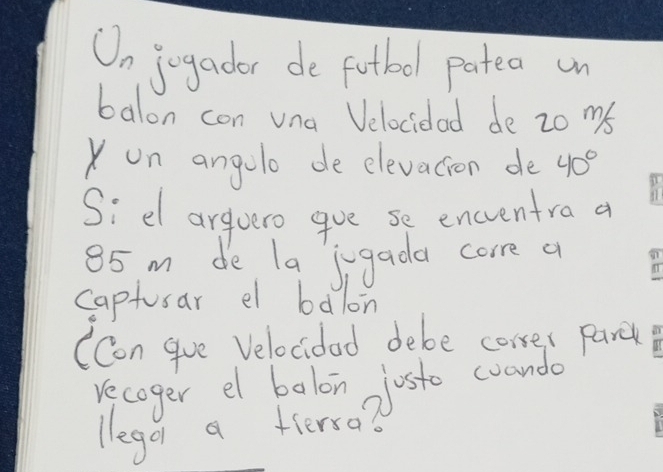 Un jugador de futbol patea un
balon con una Velocidad de 20 m/s
Y un angulo de elevacion de 40°
Si el arquero que se encuentra a
85 m de la jugada corre a
capturar el balón
¿Con que velocidad debe correr para
recoger el balón justo cuando
llega a tierra?